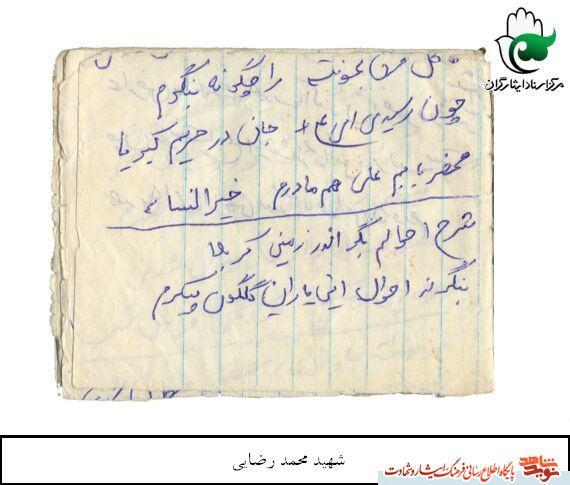 مرکز اسناد ایثارگران
گل را چگونه بنگرم
چون رسیدی ای جان در حریم کبریا
محضر پیغمبر علی هم مادرم خیرالنساء
شرح احوالم بگو اندر زمین کربلا
بنگرند احوال این یاران گلگون پیکرم
شهید محمد رضایی
نوید شاهد
پایگاه اطلاع رسانی فرهنگ ایثار و شهادت